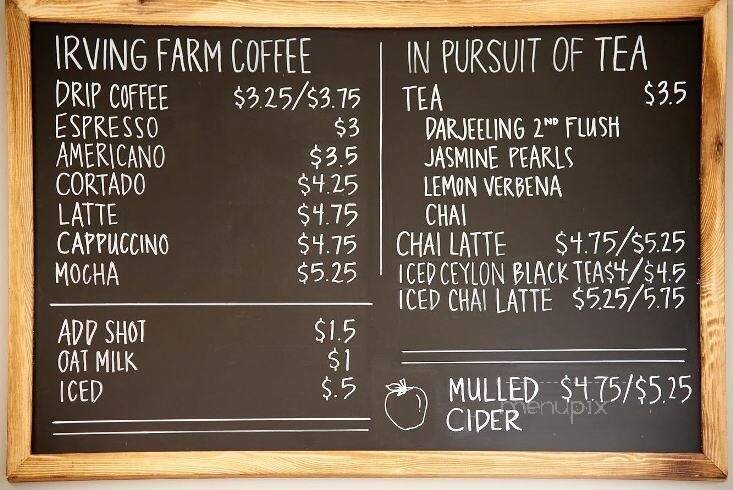 IRVING FARM COFFEE
DRIP COFFEE $3.25/$3.75
ESPRESSO $3
AMERICANO $3.5
CORTADO $4.25
LATTE $4.75
CAPPUCCINO $4.75
MOCHA $5.25
ADD SHOT $1.5
OAT MILK $1
ICED $.5
IN PURSUIT OF TEA
TEA $3.5
DARJEELING 2ND FLUSH
JASMINE PEARLS
LEMON VERBENA
CHAI
CHAI LATTE $4.75/$5.25
ICED CEYLON BLACK TEA $4/$4.5
ICED CHAI LATTE $5.25/5.75
MULLED $4.75/$5.25
CIDER
menupix